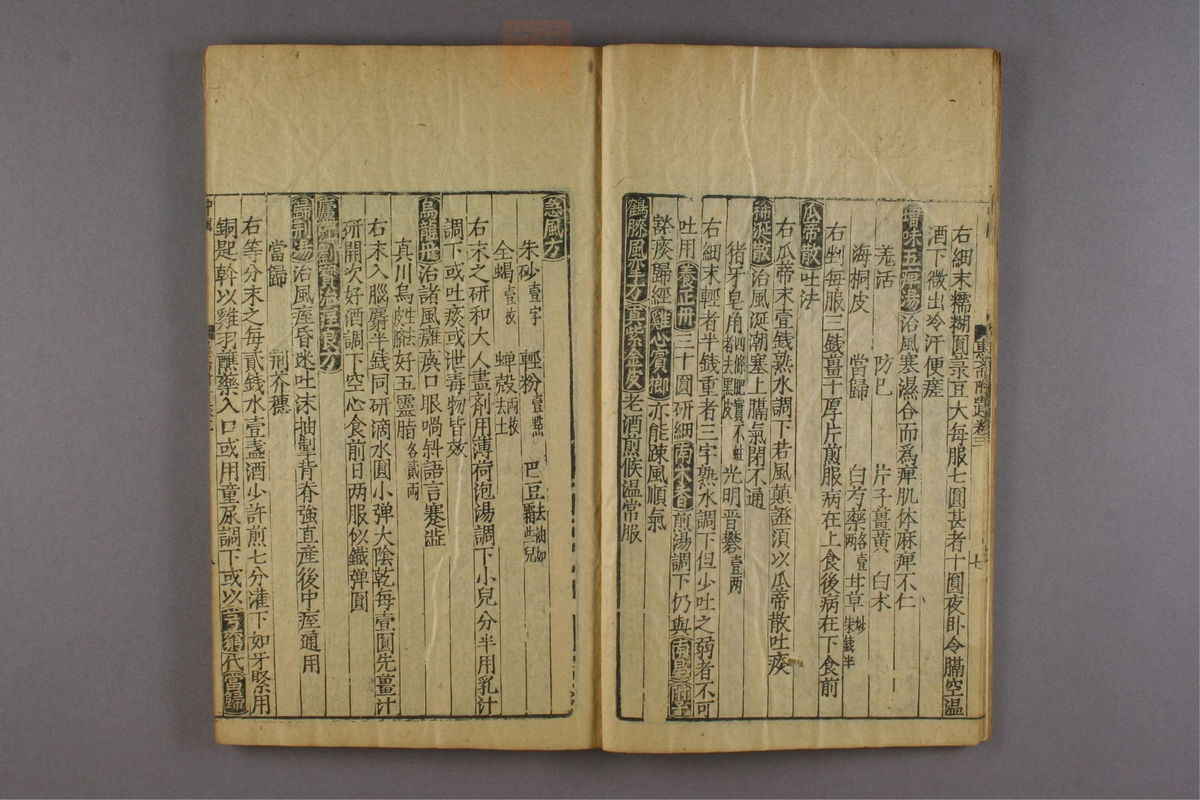 右細末糯糊圓菉豆大每服七圓甚者十圓夜卧令膈空温
酒下微出冷汗便瘥
增味五痺湯治風寒濕合而爲痺肌体麻痺不仁
羗活 防已 片子薑黄 白术
海桐皮 當歸 白芍藥各壹兩 甘草炒柒錢半
右剉每服三錢薑十厚片煎服病在上食後病在下食前
瓜帝散吐法
右瓜帝末壹錢熟水調下若風顛證湏以瓜帝散吐痰
稀涎散治風涎潮塞上膈氣閉不通
猪牙皂角四條肥實不蛀者去黑皮 光明晋礬壹两
右細末輕者半錢重者三字熟水調下但少吐之弱者不可
吐用養正丹三十圓研細南木香煎湯調下仍與
豁痰歸經雞心賓榔亦能疎風順氣
鶴膝風 方真紫金皮老酒煎候温常服
急風方
朱砂壹字 輕粉壹點 巴豆去油如霜些兒
全蝎壹枚 蟬殼兩枚去土
右末之研和大人盡剤用薄荷泡湯調下小兒分半用乳汁
調下或吐痰或泄毒物皆效
烏龍 治諸風癱瘓口眼喎斜語言蹇澁
真川烏 好五靈脂各貳兩
右末入腦麝半錢同研滴水圓小弹大陰乾每壹圓先薑汁
研開次好酒調下空心食前日两服似鐵弹圓
治 良方
歸荆湯治風痓昏迷吐沫抽掣背脊強直産後中痓通用
當歸 荆芥穗
右等分末之每貳錢水壹盞酒少許煎七分灌下如牙緊用
銅匙幹以雞羽蘸藥入口或用童尿調下或以芎藭代當歸